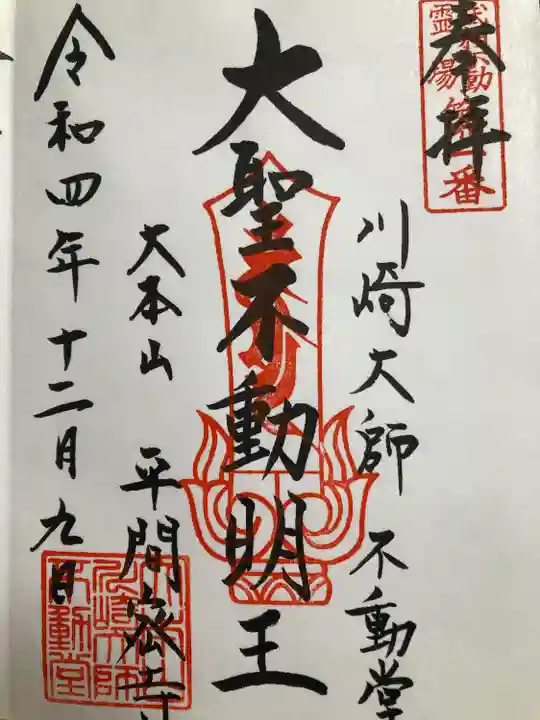 奉拝
川崎大師 不動堂
大聖不動明王
大本山 平間寺
令和四年十二月九日
霊場
番
川崎大師
不動堂